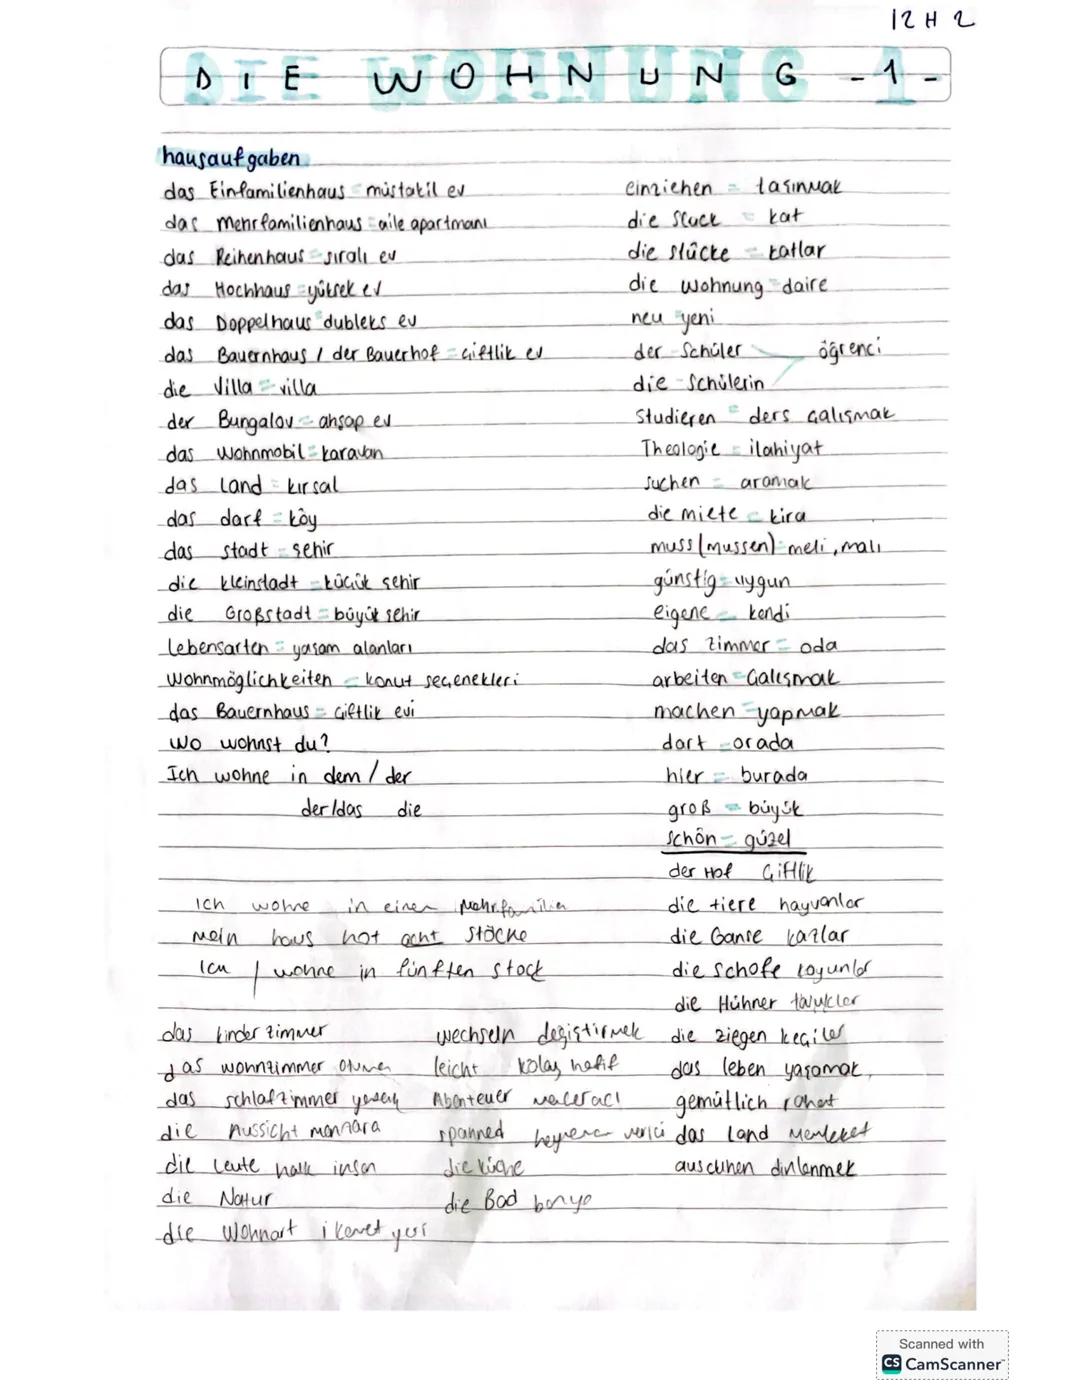 12 H 2
DIE WOHNUNG -1-
hausaufgaben
das Einfamilienhaus = müstakil ev
das Mehrfamilienhaus = aile apartmanı
das Reihenhaus = sıralı ev
das Hochhaus = yüksek ev
das Doppelhaus = dubleks ev
das Bauernhaus / der Bauerhof = çiftlik ev
die Villa = villa
der Bungalov = ahşap ev
das Wohnmobil = karavan
das Land = kırsal
das darf = köy
das stadt = şehir
die kleinstadt = küçük şehir
die Großstadt = büyük şehir
Lebensarten = yaşam alanları
Wohnmöglichkeiten = konut seçenekleri
das Bauernhaus = çiftlik evi
Wo wohnst du?
Ich wohne in dem / der
der/das die
Ich wohne in einen Mehrfamilien
Mein haus hat acht Stöcke
Ich / wohne in fünften stock
das kinderzimmer
das wohnzimmer oturma
das schlafzimmer
die Aussicht manzara
die Leute halk insan
die Natur
die Wohnart ikamet yeri
wechseln değiştirmek
leicht kolay hafif
Abenteuer maceracı
spanned heyecan verici
die küche
die Bad banyo
einziehen = taşınmak
die stuck = kat
die stücke = katlar
die Wohnung = daire
neu = yeni
der Schüler öğrenci
die Schülerin
studieren = ders çalışmak
Theologie = ilahiyat
suchen = aramak
die miete = kira
muss (mussen) = meli, malı
günstig = uygun
eigene = kendi
das zimmer = oda
arbeiten = çalışmak
machen = yapmak
dart = orada
hier = burada
groß = büyük
schön = güzel
der Hof çiftlik
die tiere hayvanlar
die Ganse kazlar
die schofe koyunlar
die Hühner tavuklar
die ziegen keçiler
das leben yaşamak
gemütlich rahat
das Land memleket
auscuhen dinlenmek
Scanned with
CS CamScanner